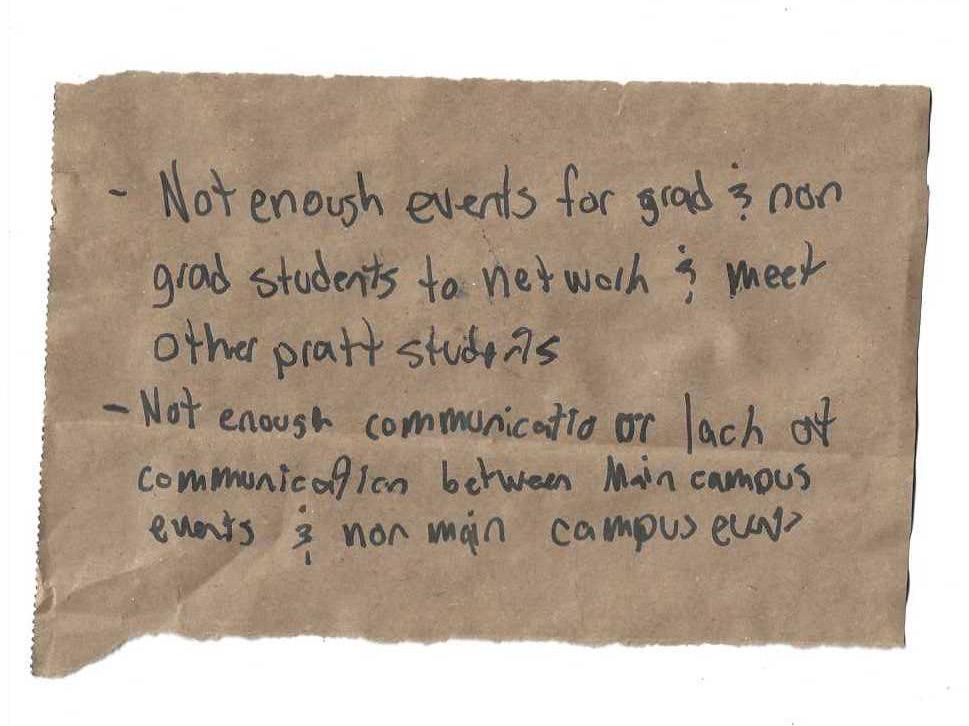 - Not enough events for grad & non
grad students to network & meet
other pratt students
- Not enough communicatio or lach of
communication between Main campus
events & non main campus events